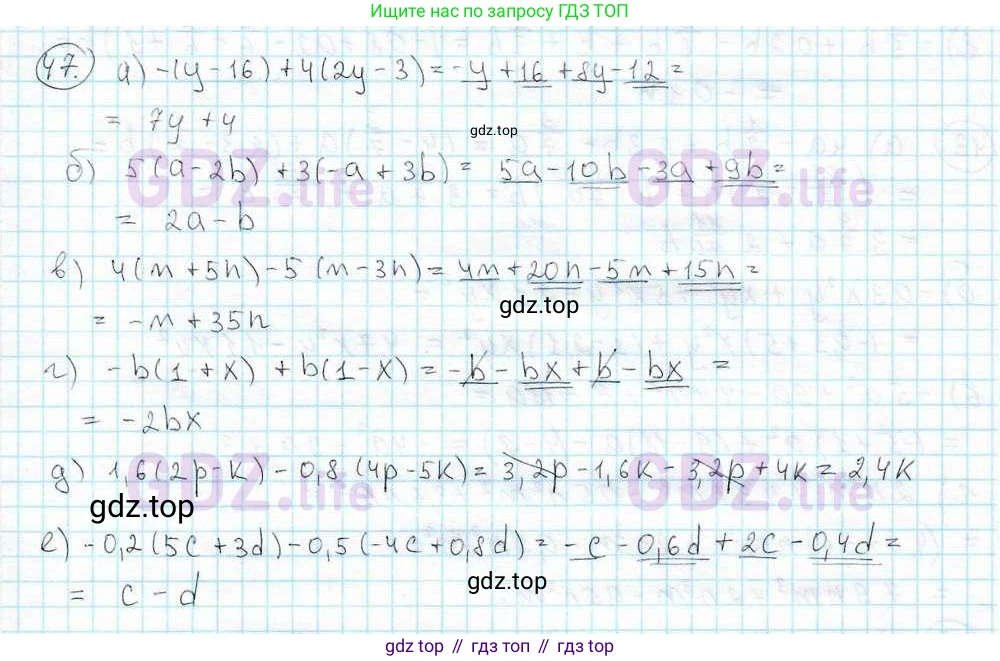 Ищите нас по запросу ГДЗ ТОП
47. а) -(y-16)+4(2y-3)=-y+16+8y-12=
= 7y+4
gdz.top
б) 5(a-2b)+3(-a+3b)= 5a-10b-3a+9b=
GDZ.life GDZ.life
= 2a-b
в) 4(m+5n)-5(m-3n)=4m+20n-5m+15n=
gdz.top
= -m+35n
г) -b(1+x)+b(1-x)=-b-bx+b-bx=
= -2bx
д) 1,6(2p-k)-0,8(4p-5k)=3,2p-1,6k-3,2p+4k=2,4k
GDZ.life GDZ.life
gdz.top
е) -0,2(5c+3d)-0,5(-4c+0,8d)=-c-0,6d+2c-0,4d=
gdz.top
= c-d
gdz top // гдз топ // gdz.top // гдз.топ